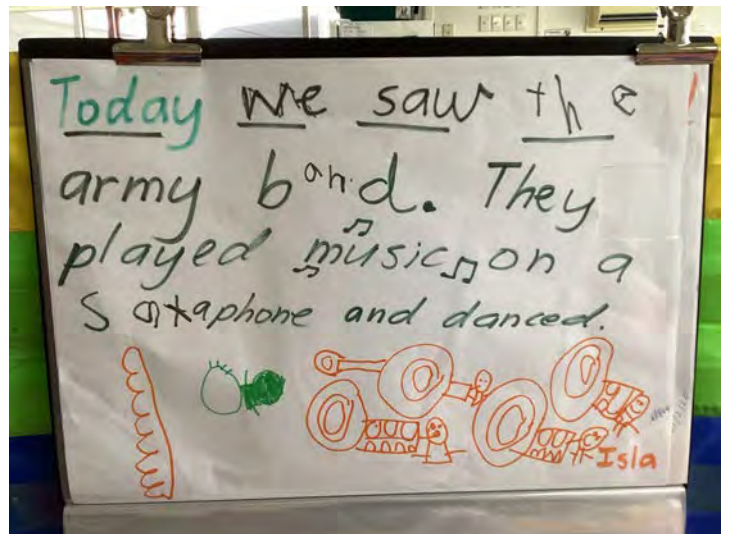 Today we saw the
army band. They
played music on a
Saxaphone and danced.
Isla